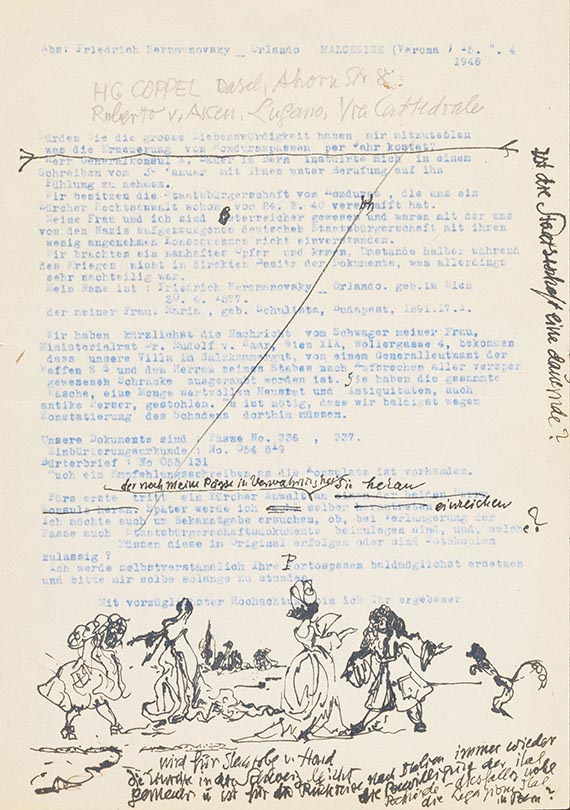 Abs: Friedrich Herzmanovsky _ Orlando MALCESINE (Verona) 15. ". 4
1946
HG COPPEL Basel, Ahorn Str 8
Roberto v. AKEN, Lugano, Via Cattedrale
Würden Sie die grosse Liebenswürdigkeit haben, mir mitzuteilen
was die Erneuerung von Honduraspässen per Jahr kostet?
Herr Generalkonsul A. Bauer in Bern in mich in einem
Schreiben vom Januar mit Ihnen unter Berufung auf ihn
Fühlung zu nehmen.
Wir besitzen die Staatsbürgerschaft von Honduras, die uns ein
Zürcher Rechtsanwalt schon vom 24. 2. 40 verschafft hat.
Meine Frau und ich sind Österreicher gewesen und waren mit der uns
von den Nazis aufgezwungenen deutschen Staatsbürgerschaft mit ihren
wenig angenehmen Konsequenzen nicht einverstanden.
Wir brachten ein namhaftes Opfer und kamen, Umstände halber während
des Krieges nicht in direkten Besitz der Dokumente, was allerdings
sehr nachteilig war.
Mein Name ist : Friedrich Herzmanovsky _ Orlando. geb.in Wien
30. 4. 1877.
der meiner Frau: Maria, geb. Schulista, Budapest, 1891.17.1.
Wir haben kürzlichst die Nachricht vom Schwager meiner Frau,
Ministerialrat Dr. Rudolf v. Saar, Wien IIA, Wollergasse 4, bekommen
dass unsere Villa in Salzkammergut, von einem Generalleutnant der
Waffen S S und den Herren seines Stabes nach Aufbrechen aller versper
gewesenen Schränke ausgeraubt worden ist. Sie haben die gesammte
Wäsche, eine Menge wertvollen Hausrat und Antiquitäten, auch
antike Perser, gestohlen. Es ist nötig, dass wir baldigst wegen
Konstatierung des Schadens dorthin müssen.
Unsere Dokumente sind : Pässe No. 336 , 337.
Einbürterungsurkunde : No. 054 649
Bürterbrief : No 055 131
Auch ein Empfehlungsschreiben an die Konsulate ist vorhanden.
der noch meine Pässe in Verwahrung hat Sie heran
Fürs erste tritt ein Zürcher Anwalt an
Später werde ich selber einreichen
Ich möchte auch um Bekanntgabe ersuchen, ob, bei Verlängerung der
Pässe auch Staatsbürgerschaftsdokumente beizulegen sind, und, welche?
Müssen diese in Original erfolgen oder sind Fotokopien
zulässig ?
Ich werde selbstverständlich Ihre Portospesen baldmöglichst ersetzen
und bitte mir selbe solange zu stunden.
Mit vorzüglichster Hochachtung bin ich Ihr ergebener
Ist die Staatsbürgerschaft eine dauernde?
wird für
die in der Schweiz leicht
gemacht u ist für die Rückreise nach Italien immer wieder
die Bewilligung der ital
Behörde diesfalls
die Legation ital
in Bern?